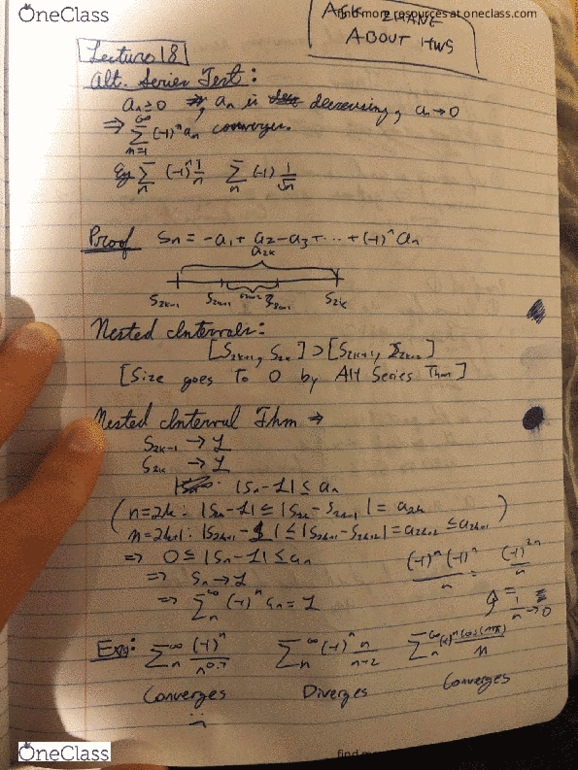 OneClass
find more resources at oneclass.com
ASK SHANE
ABOUT HWS
Lecture 18
Alt. Series Test:
aₙ≥0 , aₙ is decreasing, aₙ→0
⇒ ∑ₙ₌₁^∞ (-1)ⁿaₙ converges.
Eg. ∑ₙ (-1)ⁿ 1/n ∑ₙ (-1) 1/√n
Proof Sₙ = -a₁ + a₂ - a₃ + ... + (-1)ⁿ aₙ
a₂ₖ
S₂ₖ₋₁ S₂ₖ₊₁ S₂ₖ
Nested Intervals:
[S₂ₖ₋₁, S₂ₖ] ⊃ [S₂ₖ₊₁, S₂ₖ₊₂]
[Size goes To 0 by Alt Series Thm]
Nested Interval Thm ⇒
S₂ₖ₋₁ → L
S₂ₖ → L
|Sₙ-L| ≤ aₙ
(n=2k: |Sₙ-L| ≤ |S₂ₖ-S₂ₖ₋₁| = a₂ₖ )
n=2k+1: |S₂ₖ₊₁-L| ≤ |S₂ₖ₊₁-S₂ₖ₊₂| = a₂ₖ₊₂ ≤ a₂ₖ₊₁
⇒ 0 ≤ |Sₙ-L| ≤ aₙ (-1)ⁿ(-1)ⁿ/n = (-1)²ⁿ/n
⇒ Sₙ → L = 1/n → 0
⇒ ∑ₙ^∞ (-1)ⁿ aₙ = L
Exs: ∑ₙ^∞ (-1)ⁿ/n^0.7 ∑ₙ^∞ (-1)ⁿ n/(n+2) ∑ₙ^∞ (-1)ⁿ cos(nπ)/n
Converges Diverges Converges
OneClass
find mo